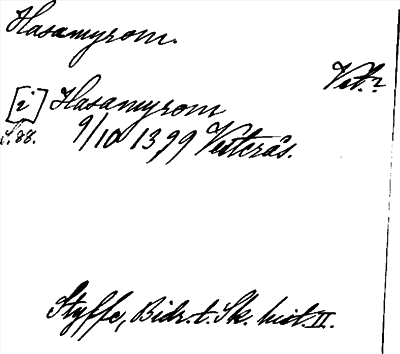 Hasamyrom.
Vet.?
[i] Hasamyrom
s. 88. 9/10 1399 Vesterås.
Styffe, Bidr. t. Sk. hist. II.